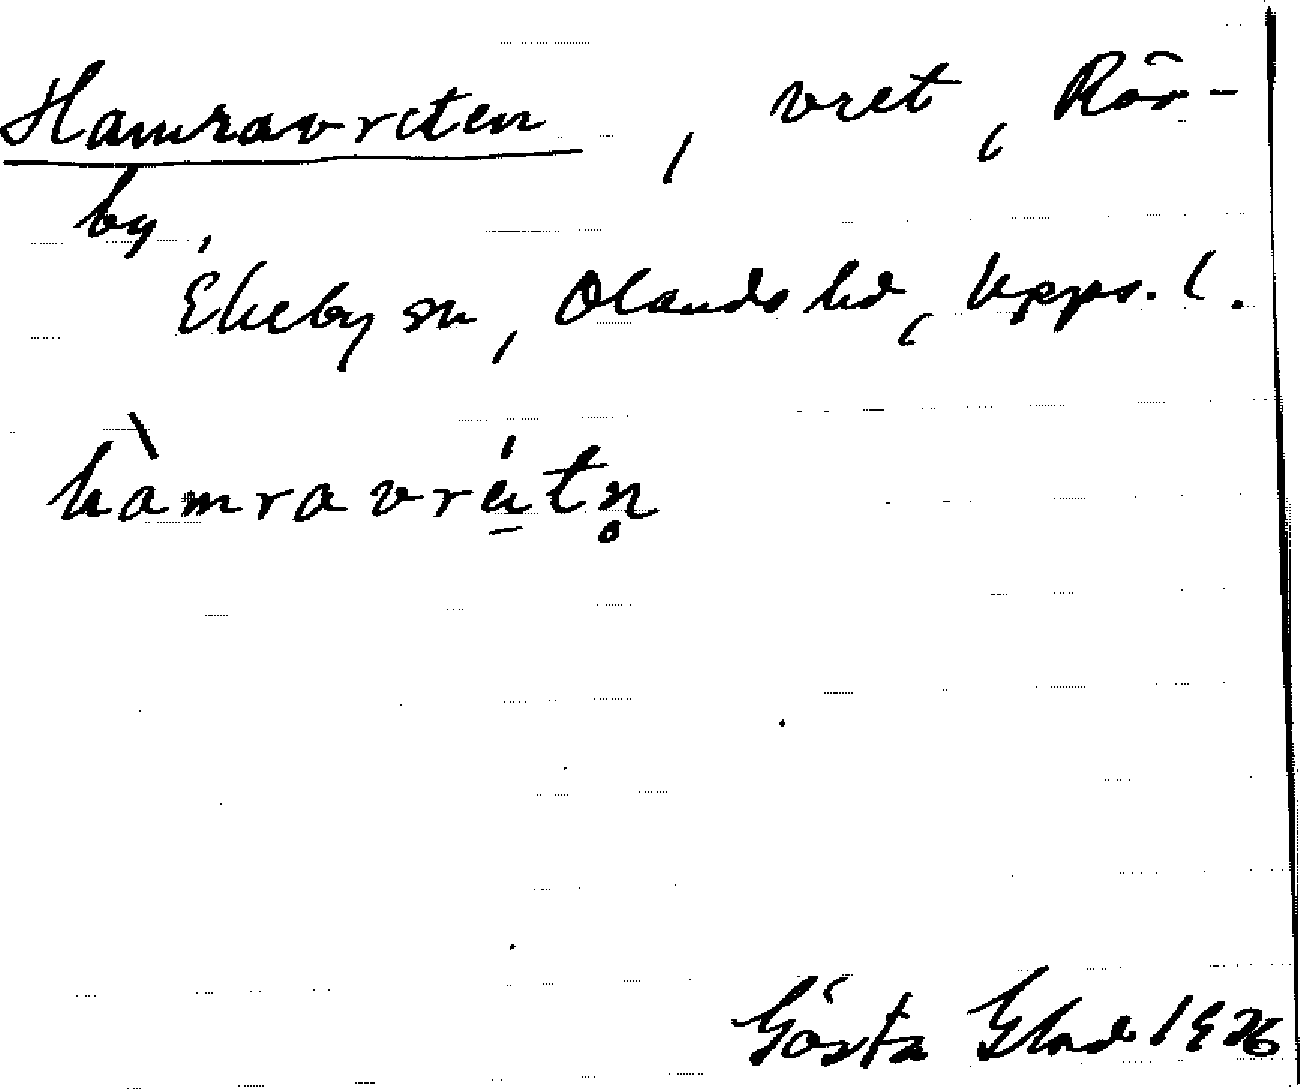 Hamravreten, vret, Rör-
by,
Ekeby sn, Olands hd, Upps. l.
hàmravrétn̥
Gösta Elad 1926